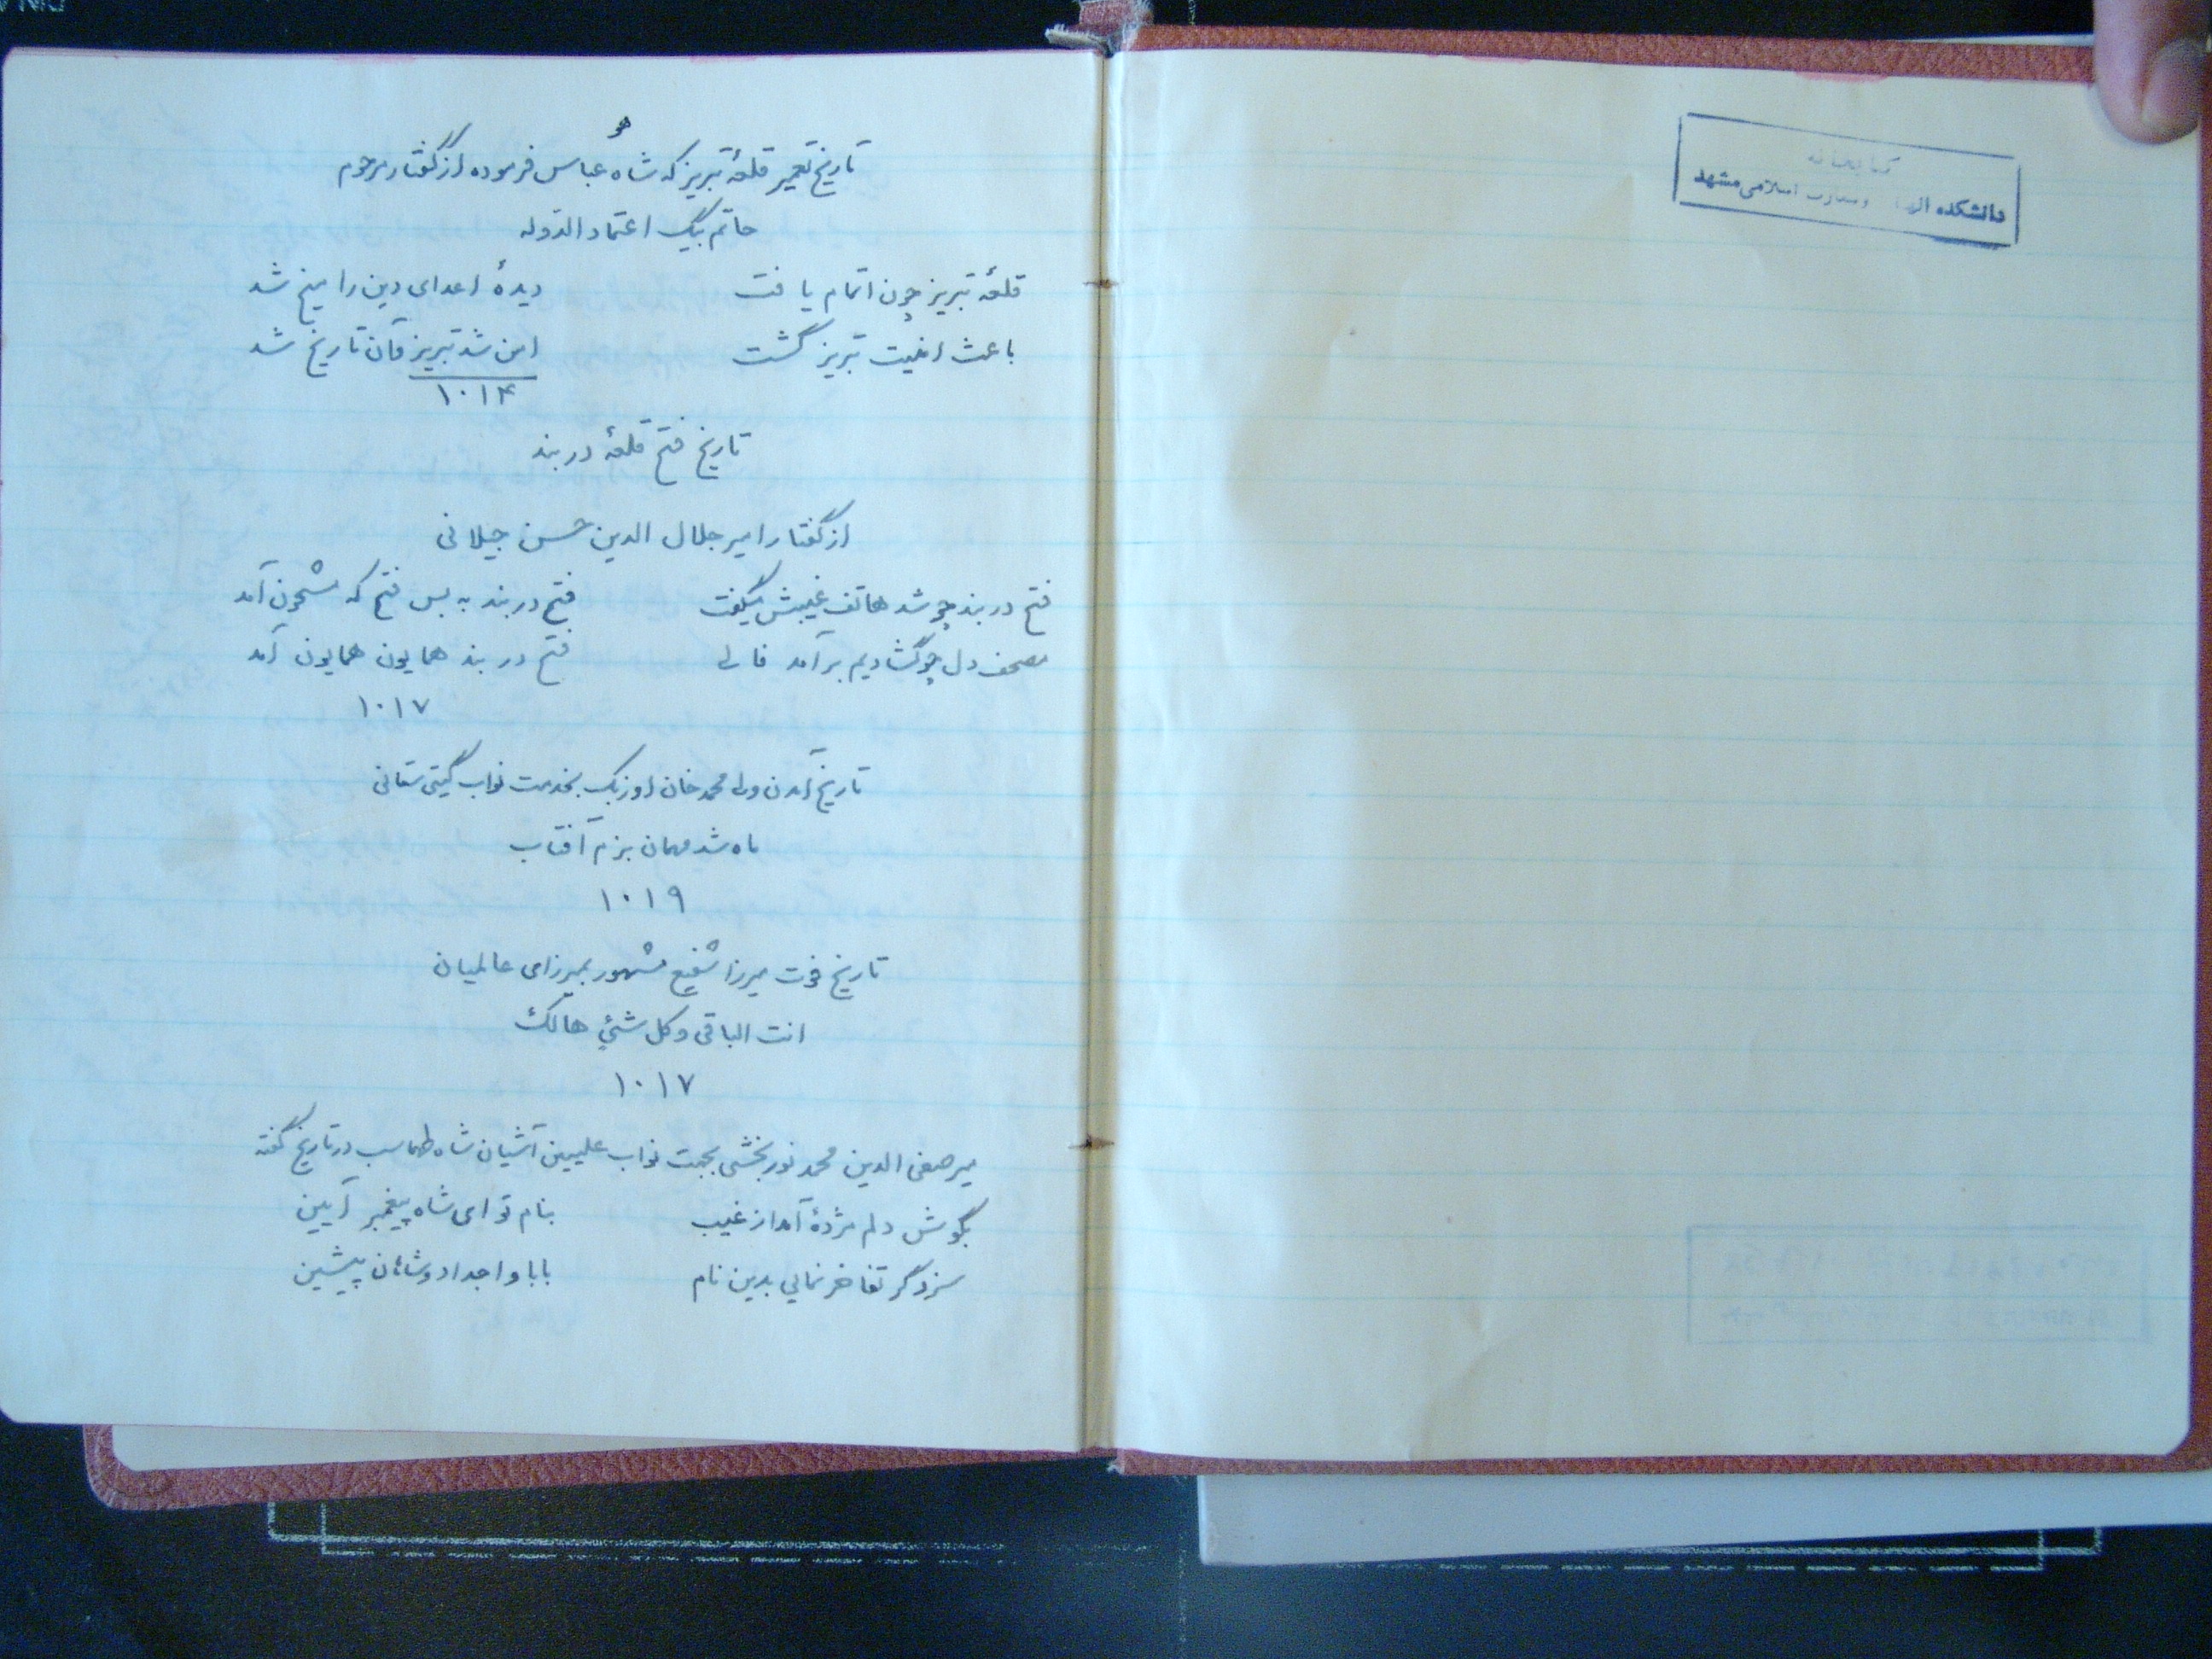 کتابخانه
دانشکده الهیات و معارف اسلامی مشهد
هو
تاریخ تعمیر قلعهٔ تبریز که شاه عباس فرموده از گفتار مرحوم
حاتم بیک اعتماد الدوله
قلعهٔ تبریز چون اتمام یافت دیدهٔ اعدای دین را میخ شد
باعث امنیت تبریز گشت امن شد تبریز فان تاریخ شد
۱۰۱۴
تاریخ فتح قلعهٔ دربند
از گفتار امیر جلال الدین حسن جیلانی
فتح دربند چو شد هاتف غیبش میگفت فتح دربند به بس فتح که مشحون آمد
مصحف دل چو گشادیم برآمد فالی فتح دربند همایون همایون آمد
۱۰۱۷
تاریخ آمدن ولی محمد خان اوزبک بخدمت نواب گیتی ستانی
ماه شد مهمان بزم آفتاب
۱۰۱۹
تاریخ فوت میرزا شفیع مشهور بمیرزای عالمیان
انت الباقی و کل شیٔ هالک
۱۰۱۷
میر صفی الدین محمد نوربخشی بجهت نواب علیین آشیان شاه طهماسب در تاریخ گفته
بگوش دلم مژدهٔ آمد از غیب بنام تو ای شاه پیغمبر آیین
سزد گر تفاخر نمایی بدین نام بابا و اجداد و شاهان پیشین